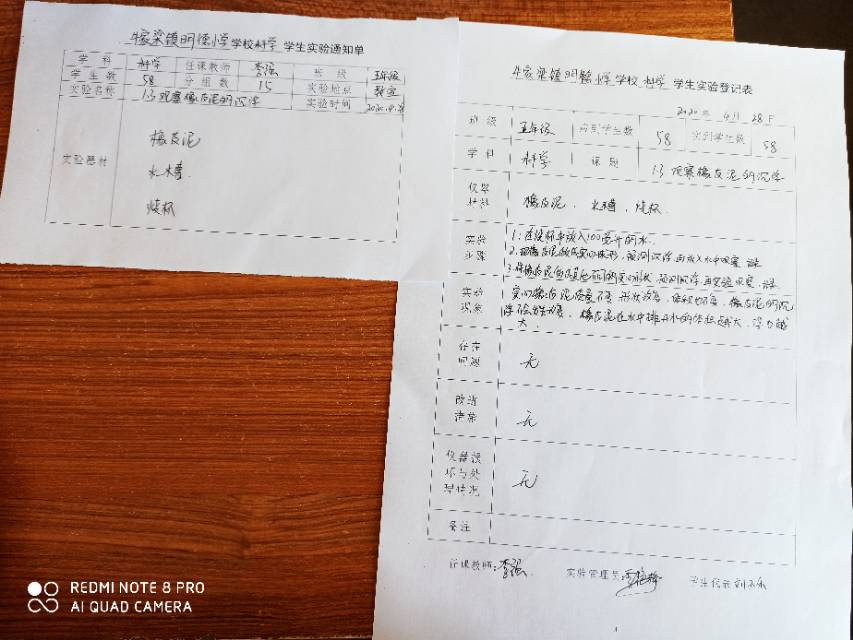 牛家梁镇明德小学学校科学 学生实验通知单
学 科 科学 任课教师 李强 班 级 五年级
学 生 数 58 分 组 数 15 实验地点 教室
实验名称 1.3 观察橡皮泥的沉浮 实验时间 2020.4.28
实验器材
橡皮泥
水槽
烧杯
牛家梁镇明德小学学校 科学 学生实验登记表
2020年 4月 28日
班 级 五年级 应到学生数 58 实到学生数 58
学 科 科学 课 题 1.3 观察橡皮泥的沉浮
仪器 橡皮泥、水槽、烧杯
实验 1.在烧杯中放入100毫升的水.
步骤 2.把橡皮泥做成实心球形,预测沉浮,再放入水中观察
3. 实心形状,预测沉浮,再实验观察
实验 实心橡皮泥轻重不变 形状改变,体积 橡皮泥的沉
现象 浮 橡皮泥在水中排开水的体积越大,浮力越
大.
存在
问题 无
改进
措施 无
仪器损
坏与处
理情况 无
备注
任课教师:李强 实验管理员 学生代表
REDMI NOTE 8 PRO
AI QUAD CAMERA